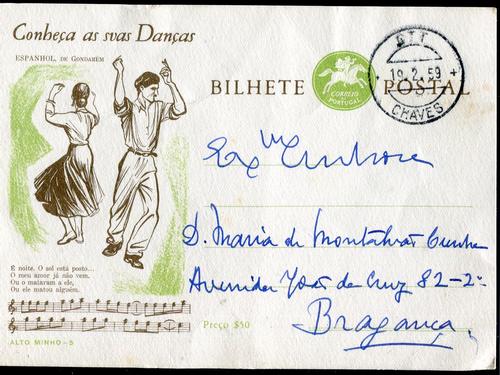 Conheça as svas Danças
ESPANHOL, DE GONDARÉM
BILHETE POSTAL
CORREIO DE PORTUGAL
CTT
19.2.59
CHAVES
Exma Senhora
D. Maria de Montalvão Cunha
Avenida João da Cruz 82-2º
Bragança
É noite. O sol está posto...
O meu amor já não vem.
Ou o mataram a ele,
Ou ele matou alguém.
Preço $50
ALTO MINHO-5